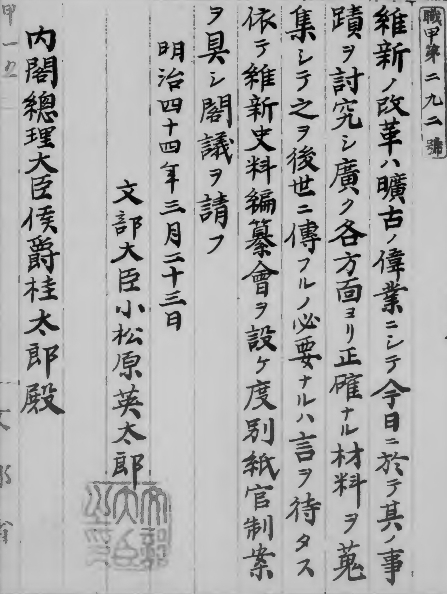 職甲第二九二號
維新ノ改革ハ曠古ノ偉業ニシテ今日ニ於テ其ノ事
蹟ヲ討究シ廣ク各方面ヨリ正確ナル材料ヲ蒐
集シテ之ヲ後世ニ傳フルノ必要ナルハ言ヲ待タス
依テ維新史料編纂會ヲ設ケ度別紙官制案
ヲ具シ閣議ヲ請フ
明治四十四年三月二十三日
文部大臣小松原英太郎
文部大臣之印
內閣總理大臣侯爵桂太郎殿